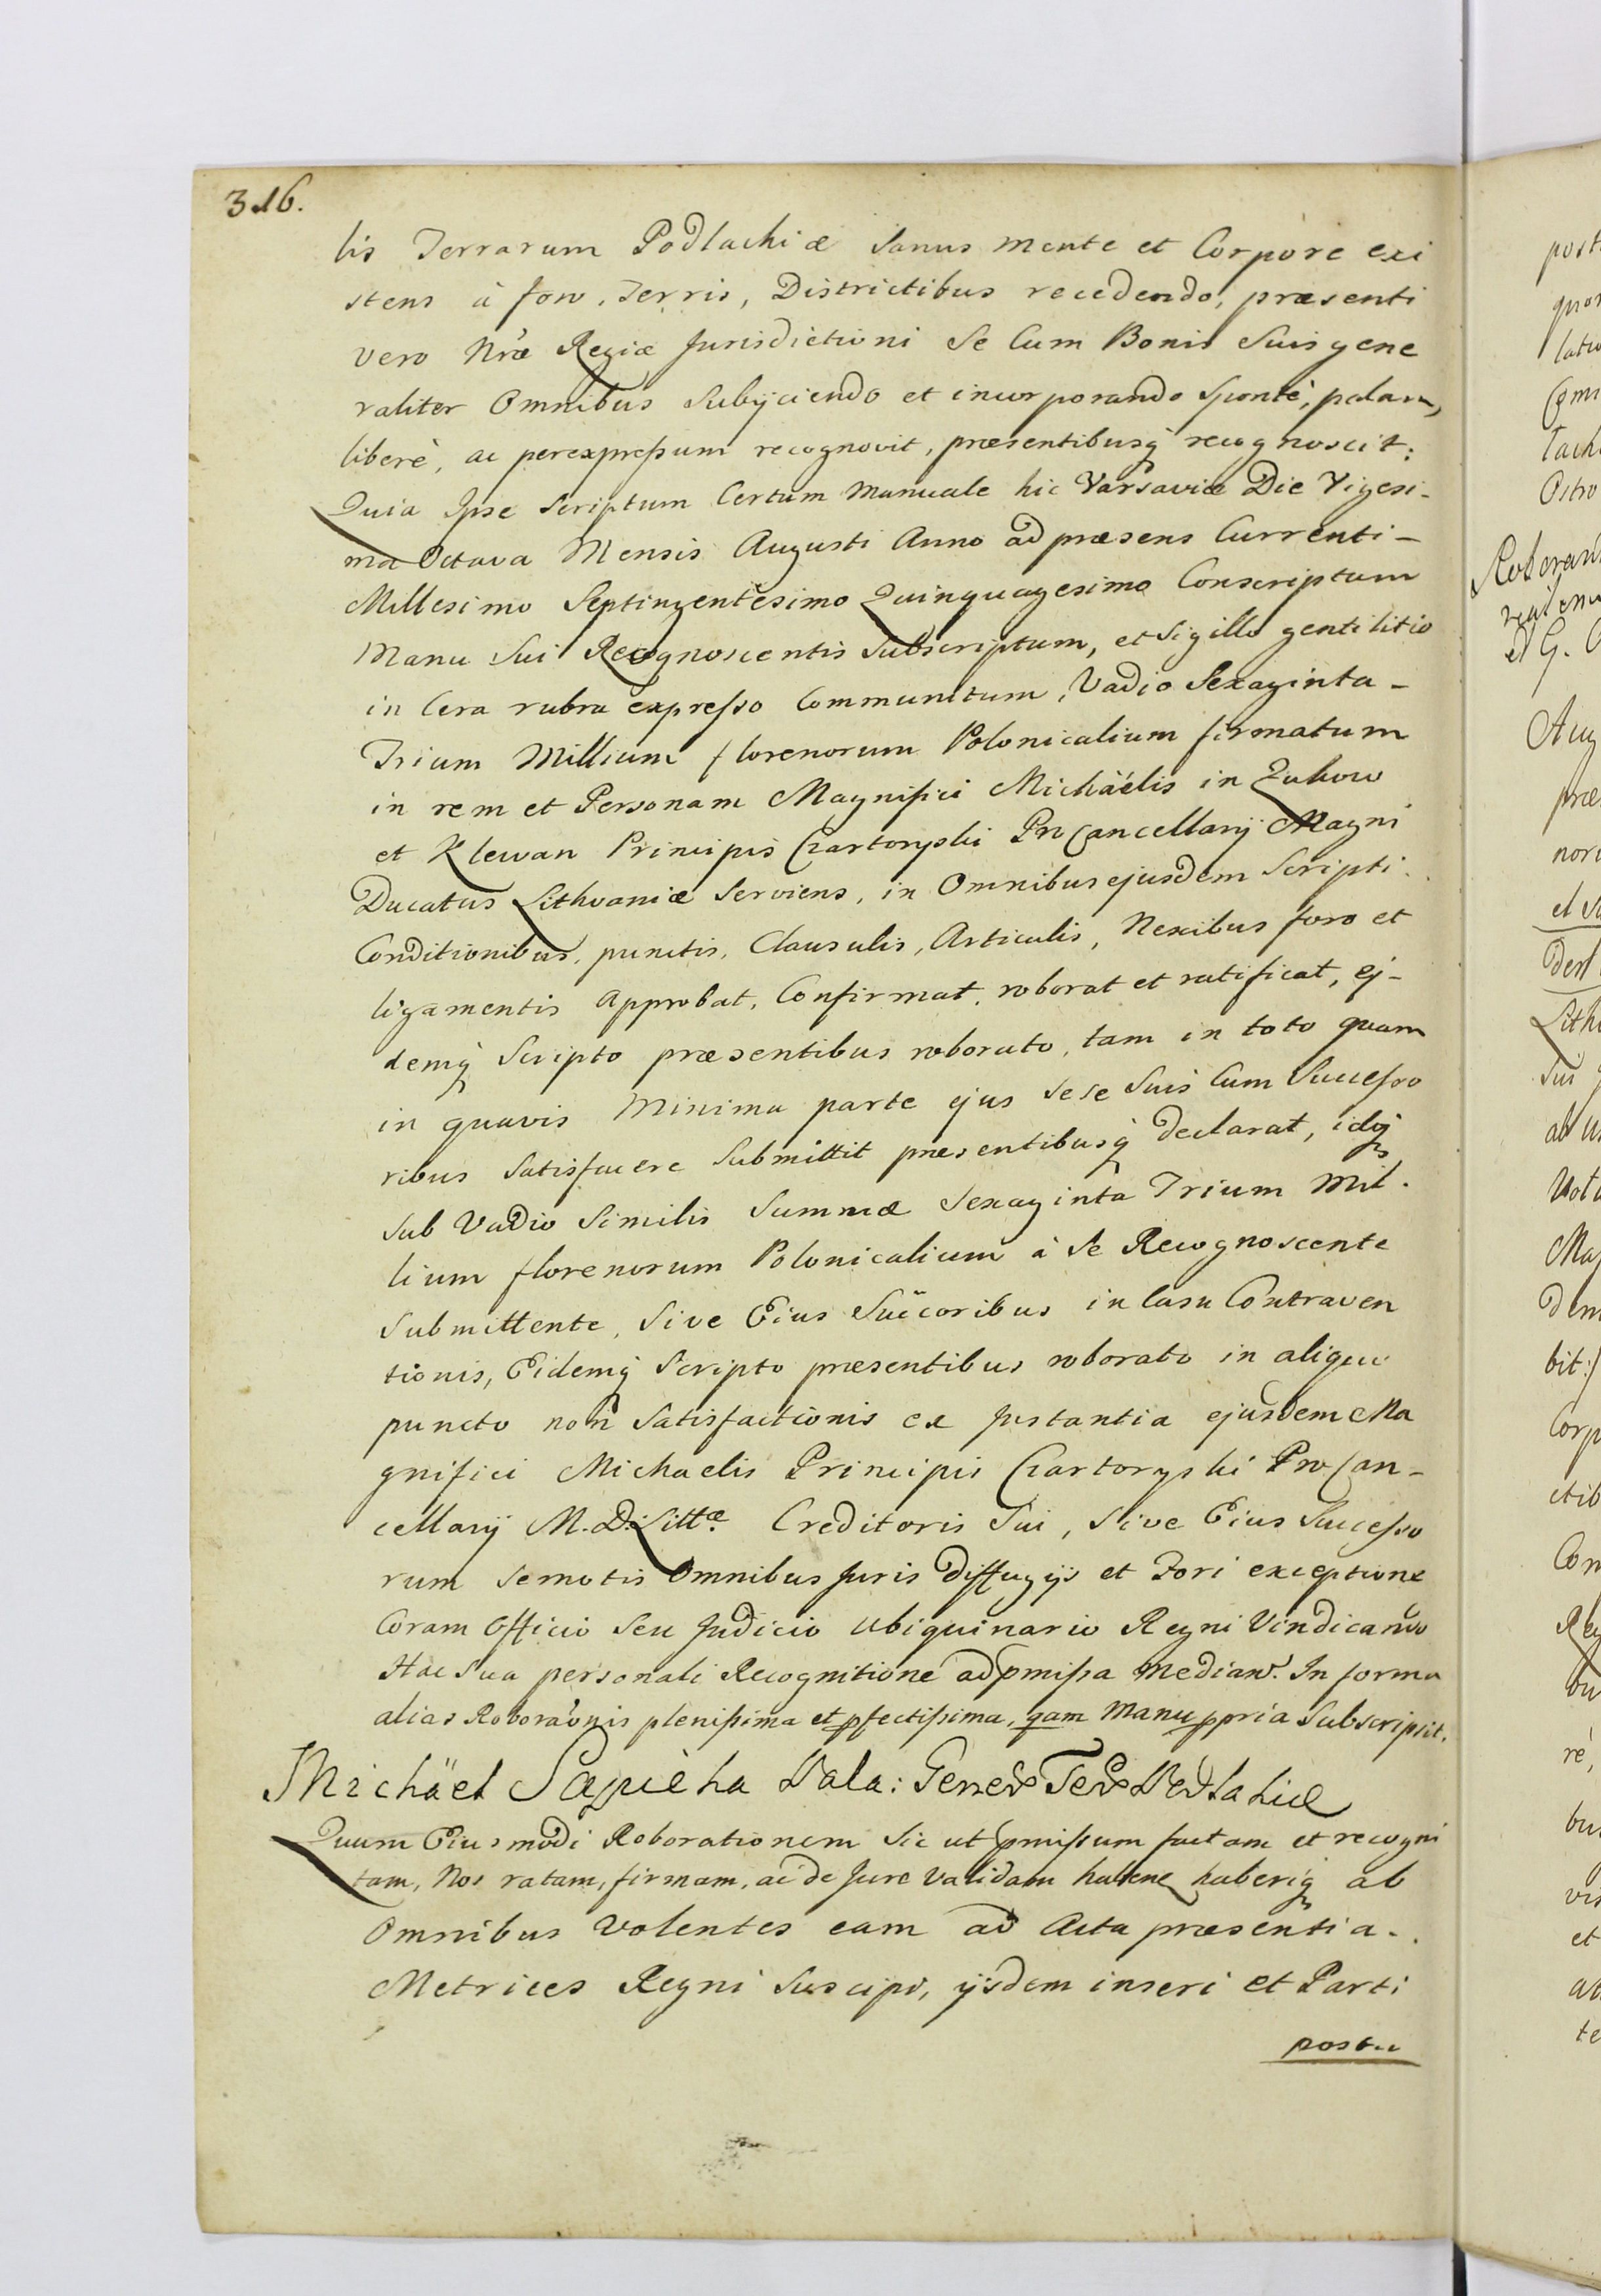 316.
lis Terrarum Podlachiæ Sanus mente et Corpore exi
stens à foro, Terris, Districtibus recedendo, præsenti
vero Nræ Regiæ Jurisdictioni Se Cum Bonis Suis gene
raliter Omnibus Subijciendo et incorporando Sponte, palam,
liberè, ac perexpressum recognovit, præsentibusq recognoscit:
Quia Ipse Scriptum Certum Manuale hic Varsaviæ Die Vigesi-
ma Octava Mensis Augusti Anno ad præsens Currenti-
Millesimo Septingentesimo Quinquagesimo Conscriptum
Manu Sui Recognoscentis Subscriptum, et Sigillo gentilitio
in Cera rubra expresso Communitum, Vadio Sexaginta-
Trium Millium florenorum Polonicalium firmatum
in rem et Personam Magnifici Michäelis in Zukow
et Klewan Principis Czartoryski Pro Cancellarij Magni
Ducatus Lithvaniæ Serviens, in Omnibus ejusdem Scripti
Conditionibus, punctis, Clausulis, Articulis, Nexibus foro et
ligamentis Approbat, Confirmat, roborat et ratificat, ej-
demq Scripto præsentibus roborato, tam in toto quam
in quavis Minima parte ejus Sese Suis Cum Successo
ribus Satisfacere Submittit præsentibusq declarat, idq
Sub Vadio Similis Summæ Sexaginta Trium Mil-
lium florenorum Polonicalium à Se Recognoscente
Submittente, Sive Eius Succoribus in Casu Contraven
tionis, Eidemq Scripto præsentibus roborato in aliquo
puncto non Satisfactionis ex Instantia ejusdem Ma
gnifici Michaelis Principis Czartoryski Pro Can-
cellarij M. D. Littæ Creditoris Sui, Sive Eius Successo
rum Semotis Omnibus Juris Diffugijs et Fori exceptione
Coram Officio Seu Judicio Ubiquinario Regni Vindicando
Hac Sua personali Recognitione ad pmissa Median. In forma
alias Roboraonis plenissima et pfectissima, qam Manu ppria Subscripsit.
Michäel Sapieha Pala: Gener
Quum Eiusmodi Roborationem Sic ut pmissum factam et recogni
tam, Nos ratam, firmam, ac de Jure Validam habene haberiq ab
Omnibus Volentes eam ad Acta præsentia.
Metrices Regni Suscipi, ijsdem inseri et Parti
postu